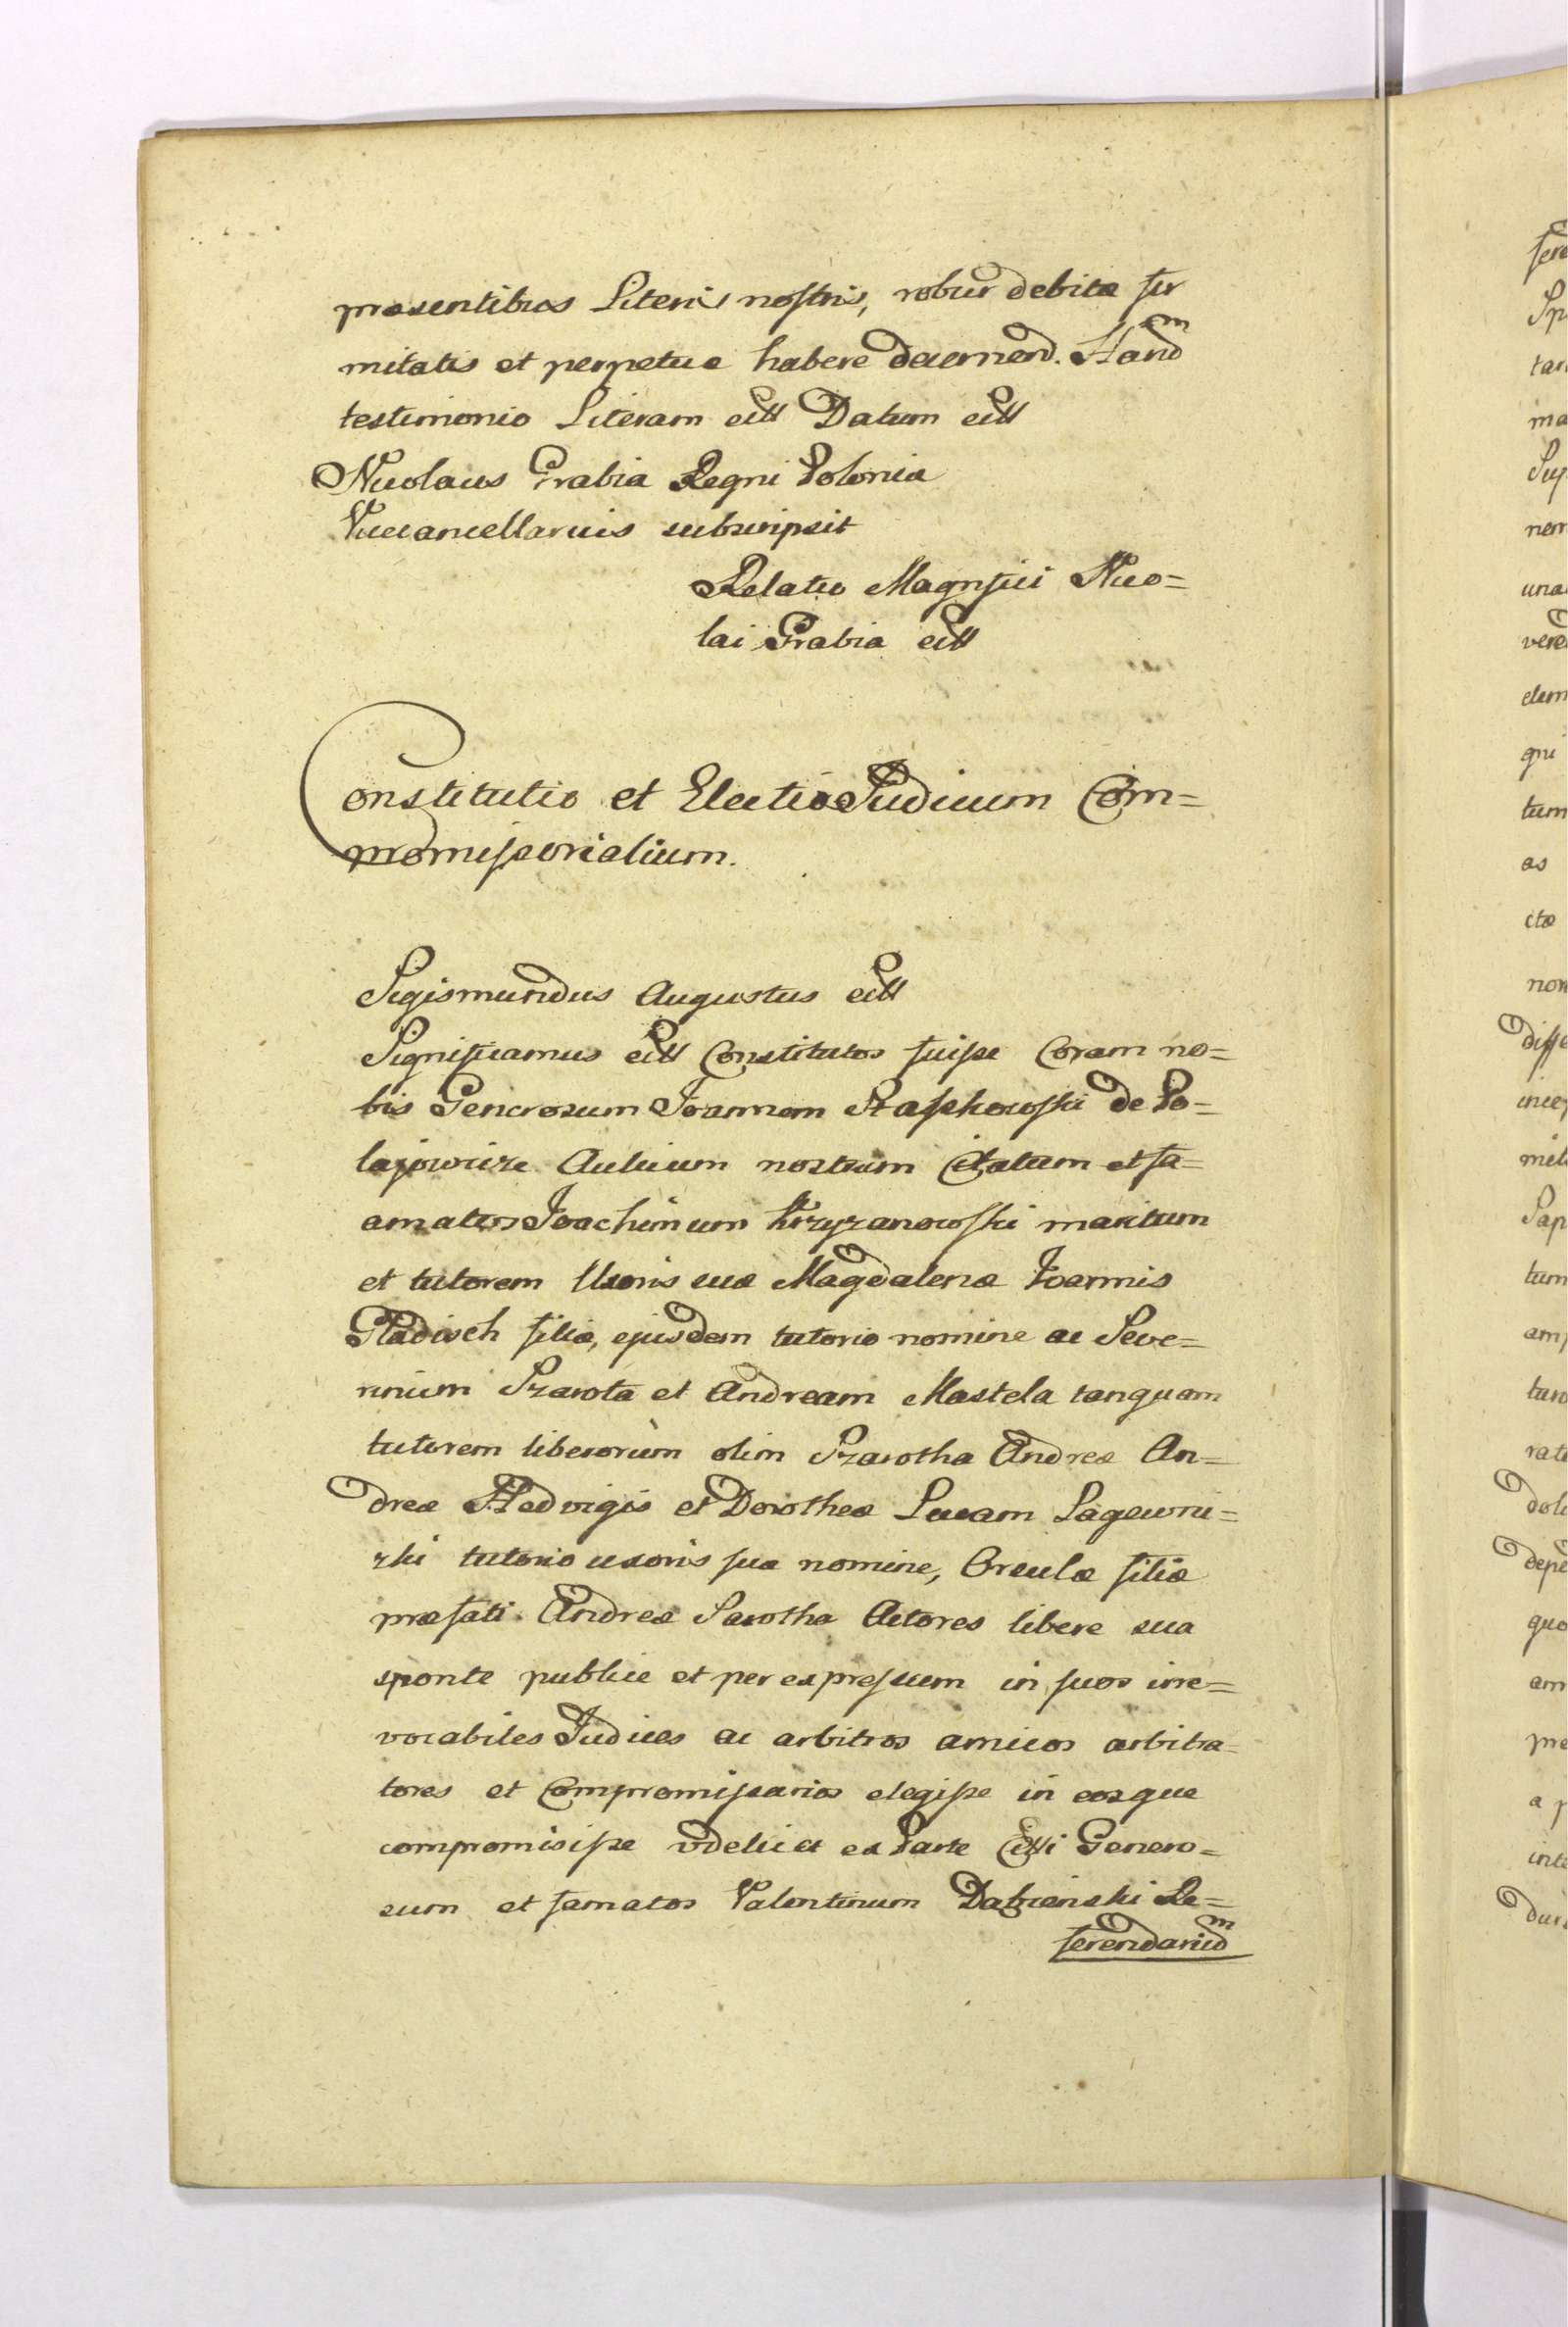 præsentibus Literis nostris, robur debitæ fir
mitatis et perpetuæ habere decernend. Harum
testimonio Literarum ett Datum ett
Nicolaus Grabia Regni Poloniæ
Vicecancellarius subscripsit
Relatio Magnifici Nico=
lai Grabia ett
Constitutio et Electio Judicum Com=
promissorialium.
Sigismundus Augustus ett
Significamus ett Constitutos fuisse Coram no=
bis Generosum Joannem Staschowski de Po=
lajowicze Aulicum nostrum Citatum et fa=
amatos Joachimum Krzyzanowski maritum
et tutorem Uxoris suæ Magdalenæ Joannis
Gladisch filiæ, ejusdem tutorio nomine ac Seve=
rinum Szarota et Andream Mastela tanquam
tutorem liberorum olim Szarotha Andreæ An=
dreæ Hedvigis et Dorotheæ Lucam Lagewni=
zki tutorio uxoris suæ nomine, Orsulæ filiæ
præfati Andreæ Sarotha Actores libere sua
sponte publice et per expressum in suos irre=
vocabiles Judices ac arbitros amicos arbitra=
tores et Compromissarios elegisse in eosque
compromisisse videlicet ex Parte Citti Genero=
sum et famatos Valentinum Dabienski Re=
ferendarium